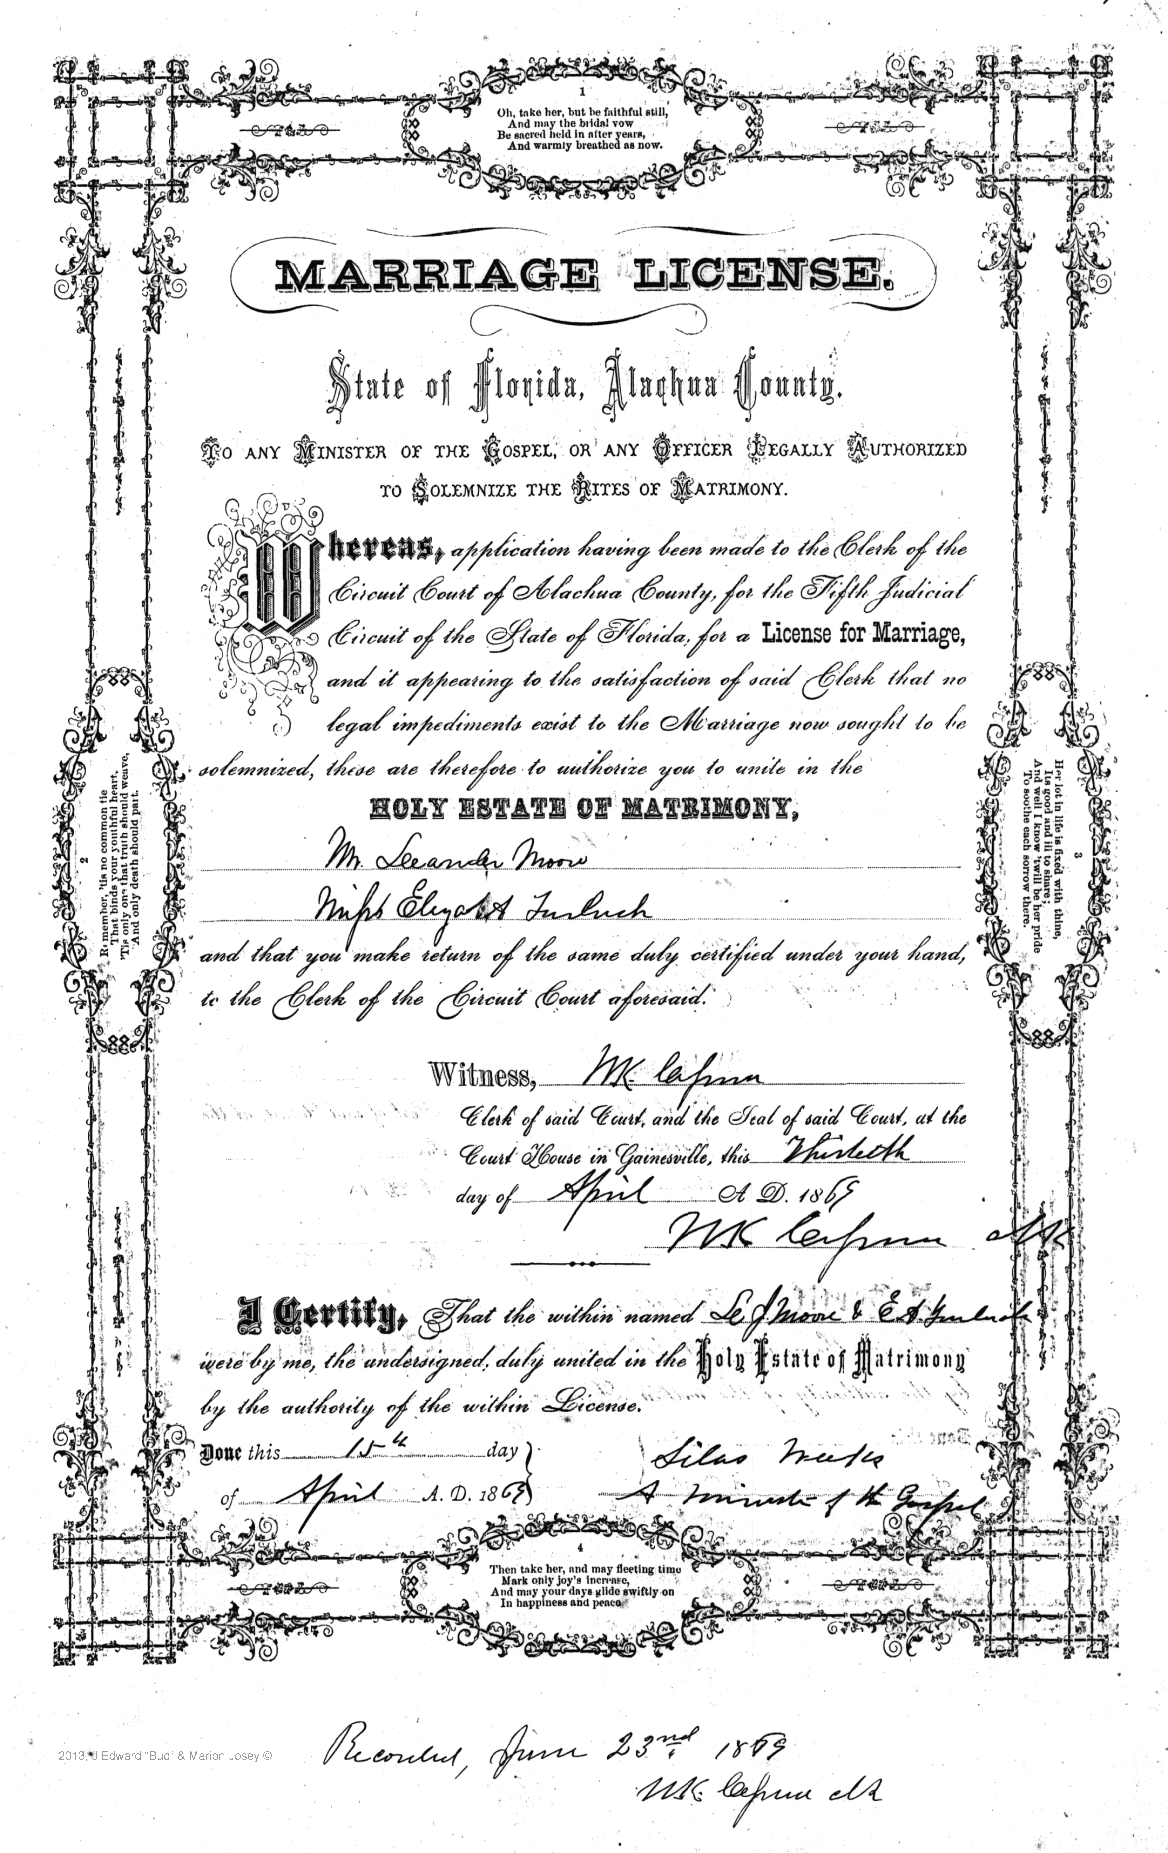 1
Oh, take her, but be faithful still,
And may the bridal vow
Be sacred held in after years,
And warmly breathed as now.
MARRIAGE LICENSE.
State of Florida, Alachua County.
TO ANY MINISTER OF THE GOSPEL, OR ANY OFFICER LEGALLY AUTHORIZED
TO SOLEMNIZE THE RITES OF MATRIMONY.
Whereas, application having been made to the Clerk of the
Circuit Court of Alachua County, for the Fifth Judicial
Circuit of the State of Florida, for a License for Marriage,
and it appearing to the satisfaction of said Clerk that no
legal impediments exist to the Marriage now sought to be
solemnized, these are therefore to authorize you to unite in the
HOLY ESTATE OF MATRIMONY,
Mr. Leeander Moore
Miss
and that you make return of the same duly certified under your hand,
to the Clerk of the Circuit Court aforesaid.
2
Remember, 'tis no common tie
That binds your youthful heart,
'Tis only one that truth should weave,
And only death should part.
3
Her lot in life is fixed with thine,
Its good and ill to share;
And well I know 'twill be her pride
To soothe each sorrow there.
Witness, WK Cessna
Clerk of said Court, and the Seal of said Court, at the
Court House in Gainesville, this
day of April A. D. 1869
WK Cessna Clk
I Certify, That the within named Le J Moore & E A
were by me, the undersigned, duly united in the Holy Estate of Matrimony
by the authority of the within License.
Done this 15th day
of April A. D. 1869
Silas Weeks
A Minister of the Gospel
4
Then take her, and may fleeting time
Mark only joy's increase,
And may your days glide swiftly on
In happiness and peace
Recorded, June 23nd 1869
WK Cessna Clk
2013, J Edward "Bud" & Marion Josey ©